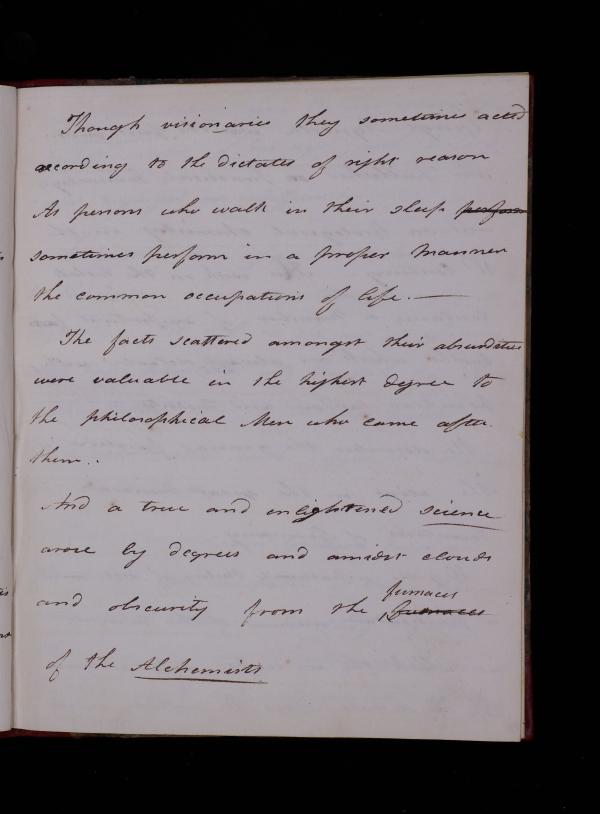 Though visionaries they sometimes acted
according to the dictates of right reason
As persons who walk in their sleep perform
sometimes perform in a proper manner
the common occupations of life. —
The facts scattered amongst their absurdities
were valuable in the highest degree to
the philosophical Men who came after
them..
And a true and enlightened science
arose by degrees and amidst clouds
furnaces
and obscurity from the furnaces
of the Alchemists